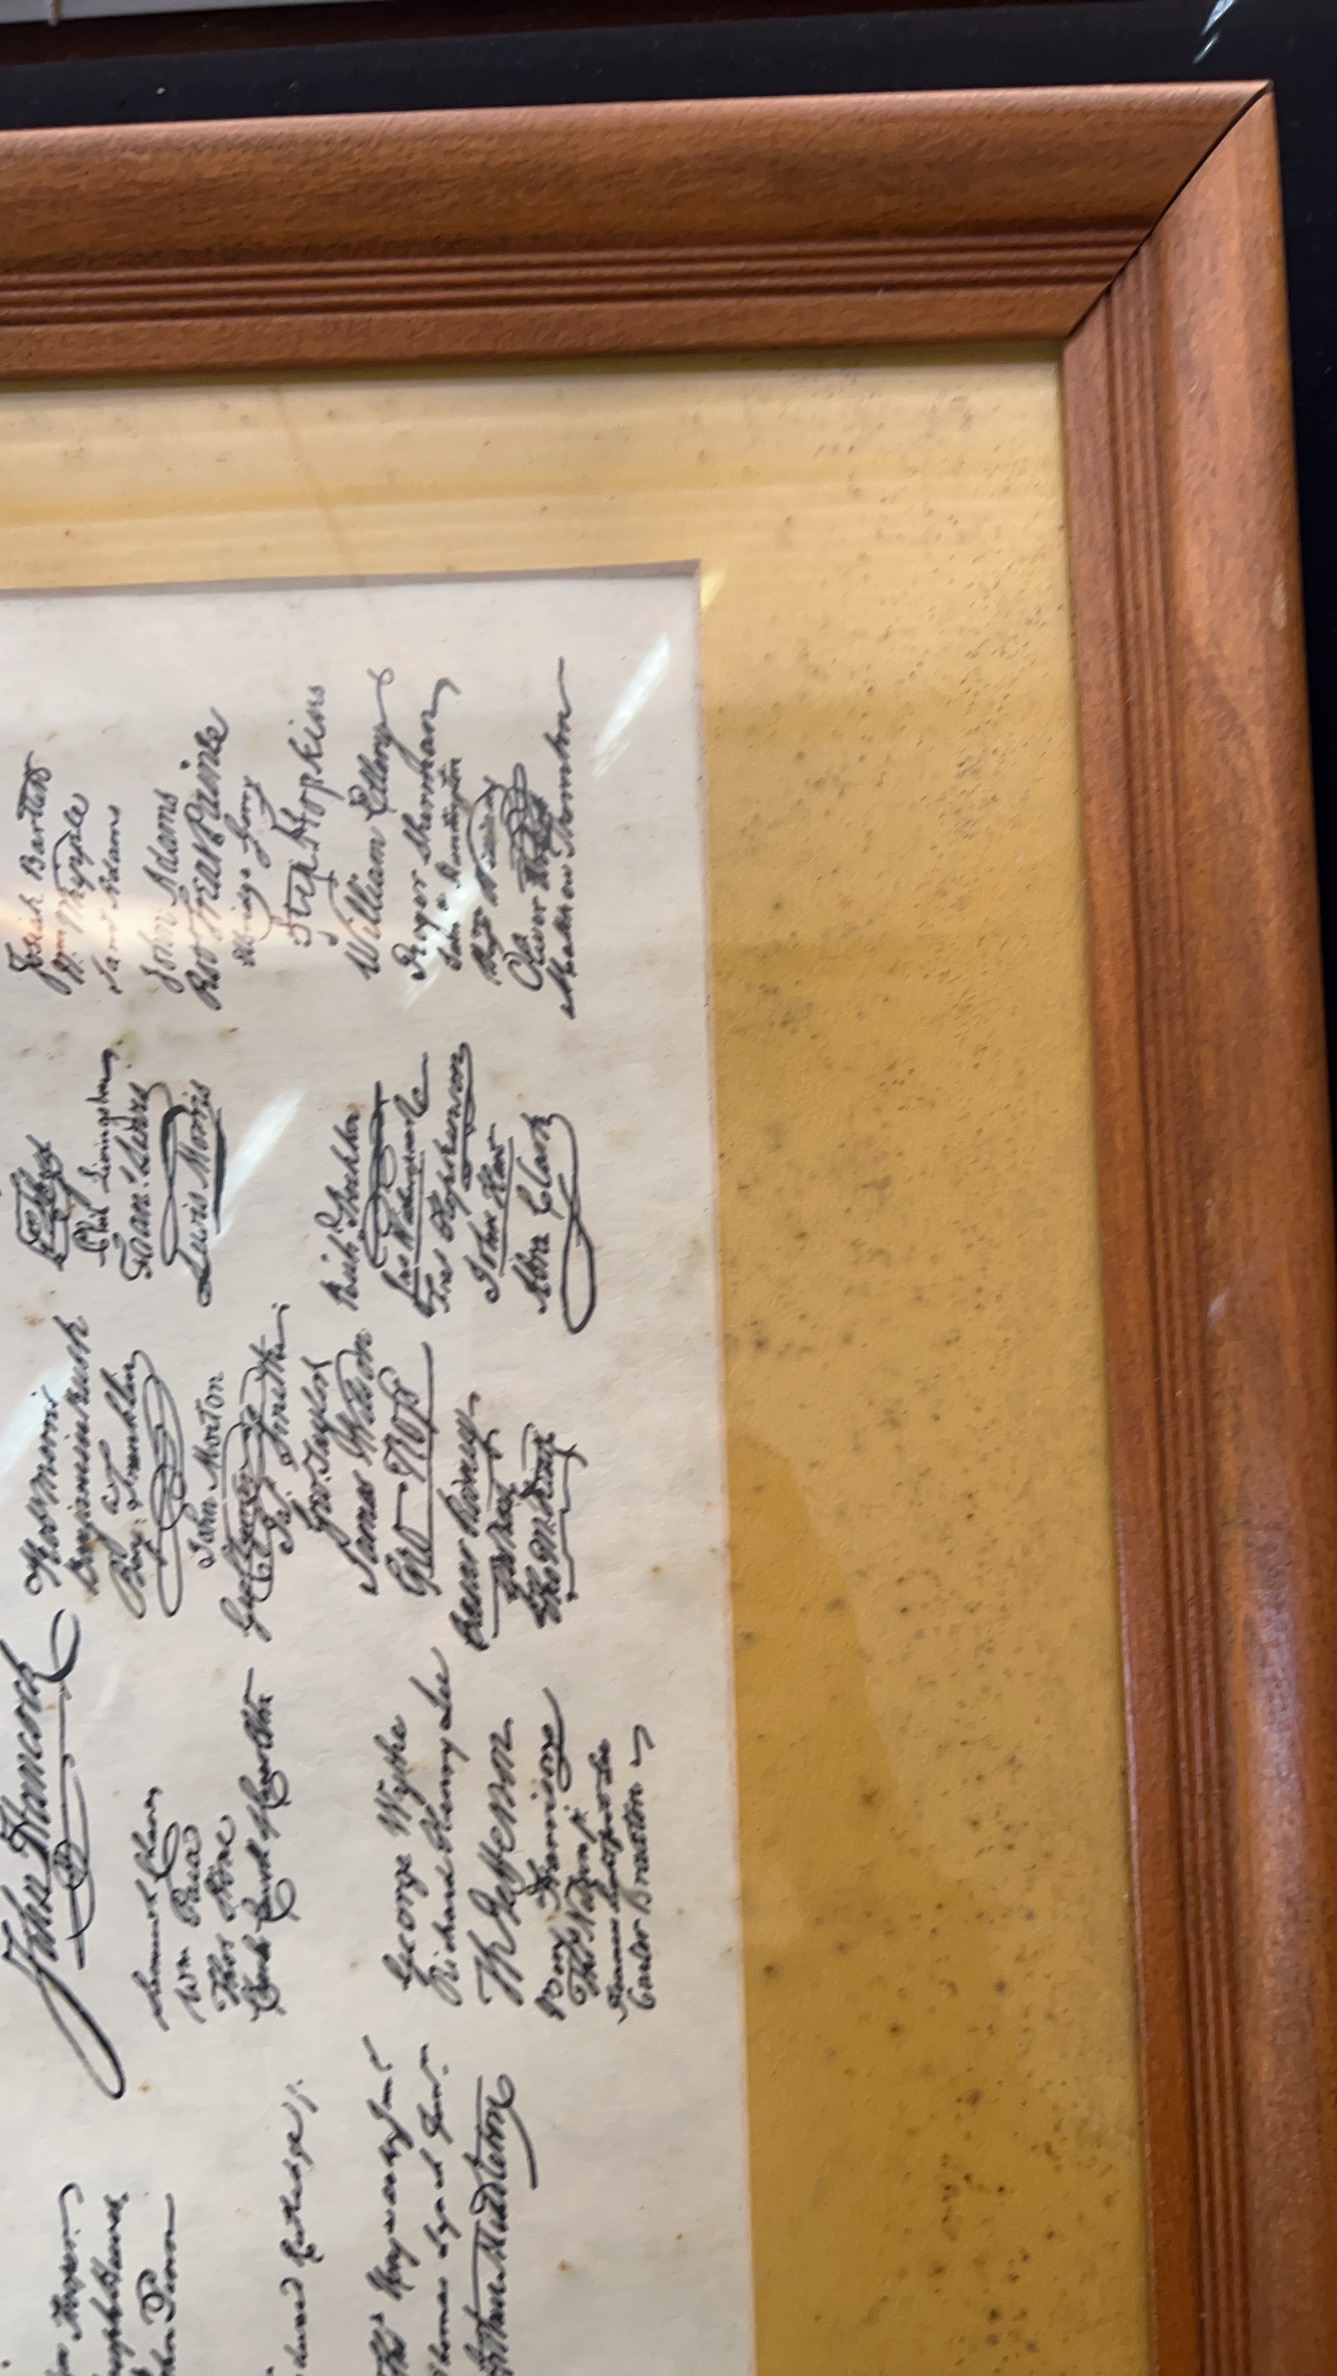 John Hancock
Edward Rutledge /.
Arthur Middleton
Samuel Chase
Wm Paca
Thos Stone
George Wythe
Richard Henry Lee
Th Jefferson
Benj Harrison
Thos Nelson jr.
Francis Lightfoot Lee
Carter Braxton
Robt Morris
Benjamin Rush
Benja Franklin
John Morton
Geo Clymer
Jas Smith
Geo. Taylor
James Wilson
Geo. Ross
Caesar Rodney
Geo Read
Tho M:Kean
Phil. Livingston
Frans. Lewis
Lewis Morris
Richd Stockton
Jno Witherspoon
Fras Hopkinson
John Hart
Abra Clark
Josiah Bartlett
Wm Whipple
Saml Adams
John Adams
Robt Treat Paine
Elbridge Gerry
Step Hopkins
William Ellery
Roger Sherman
Saml Huntington
Wm Williams
Oliver Wolcott
Matthew Thornton